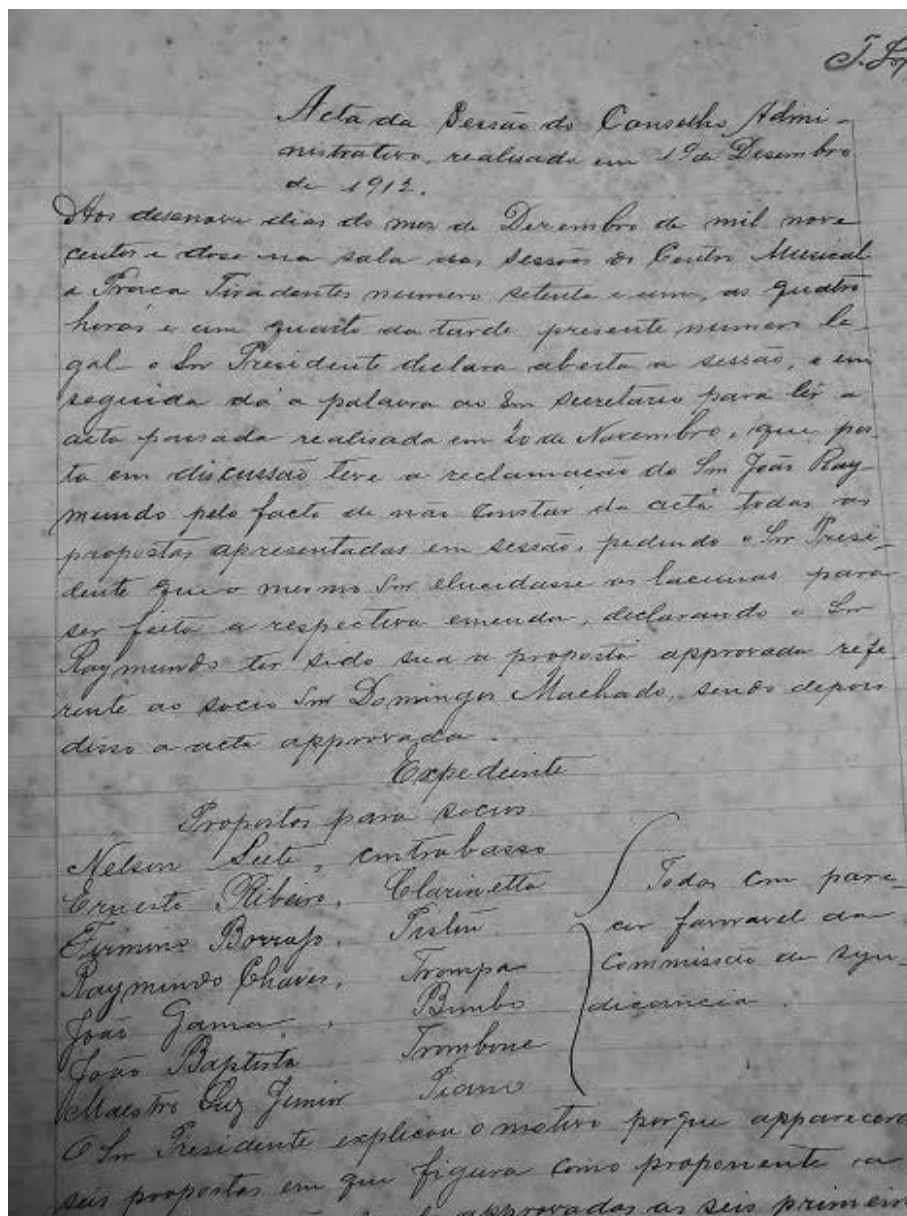 Acta da Sessão do Conselho Admi-
nistrativo, realisada em 19 de Desembro
de 1912.
Aos desenove dias do mez de Dezembro de mil nove
centos e dose na sala das sessões do Centro Musical
a Praça Tiradentes numero setenta e um, as quatro
horas e um quarto da tarde presente numero le-
gal o Snr Presidente declara aberta a sessão, e em
seguida dá a palavra ao Snr Secretario para lêr a
acta passada realisada em 20 de Novembro, que pos-
ta em discussão teve a reclamação do Snr João Ray-
mundo pelo facto de não constar da acta todas as
propostas apresentadas em sessão, pedindo o Snr Presi-
dente que o mesmo Snr elucidasse as lacunas para
ser feita a respectiva emenda, declarando o Snr
Raymundo ter sido sua a proposta approvada refe-
rente ao socio Snr Domingos Machado, sendo depois
disso a acta approvada.
Expediente
Propostos para socios
Nelson, contrabasso
Ernesto Ribeiro, Clarinetta
Firmino Borrajo, Piston
Raymundo Chaves, Trompa
João Gama, Bombo
João Baptista Trombone
Maestro Luz Junior Piano
Todos com pare-
cer favoravel da
Commissão de syn-
dicancia.
O Snr Presidente explicou o motivo porque apparecera
seis propostas em que figura como proponente
approvadas as seis primeir